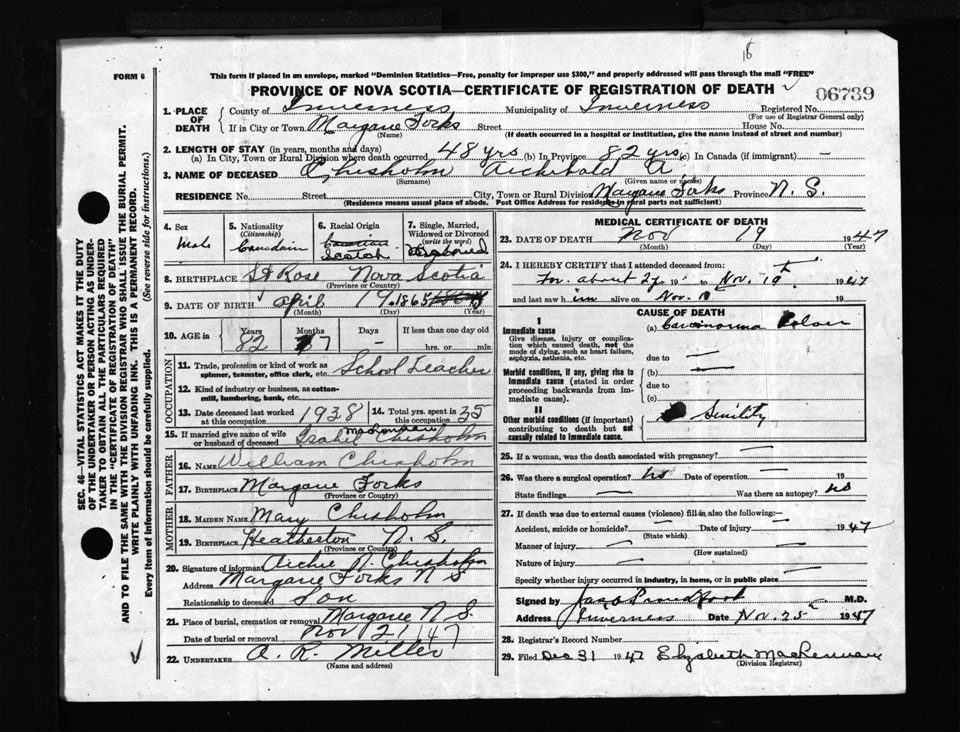 18
FORM 6
This form if placed in an envelope, marked "Dominion Statistics—Free, penalty for improper use $300," and properly addressed will pass through the mail "FREE"
PROVINCE OF NOVA SCOTIA—CERTIFICATE OF REGISTRATION OF DEATH
06739
1. PLACE OF DEATH
County of Inverness Municipality of Inverness Registered No.
(For use of Registrar General only)
If in City or Town Margaree Forks Street House No.
(Name) (If death occurred in a hospital or institution, give the name instead of street and number)
2. LENGTH OF STAY (in years, months and days)
(a) In City, Town or Rural Division where death occurred 48 yrs (b) In Province 82 yrs (c) In Canada (if immigrant) —
3. NAME OF DECEASED Chisholm Archibald A
(Surname) (Given name or names)
RESIDENCE No. Street City, Town or Rural Division Margaree Forks Province N. S.
(Residence means usual place of abode. Post Office Address for residents in rural parts not sufficient)
4. Sex Male
5. Nationality (Citizenship) Canadain
6. Racial Origin Scotch
7. Single, Married, Widowed or Divorced (write the word)
8. BIRTHPLACE St Rose Nova Scotia
(Province or Country)
9. DATE OF BIRTH April 19 1865
(Month) (Day) (Year)
10. AGE in Years 82 Months 7 Days — If less than one day
hrs. or min.
OCCUPATION
11. Trade, profession or kind of work as spinner, teamster, office clerk, etc. School Teacher
12. Kind of industry or business, as cotton-mill, lumbering, bank, etc.
13. Date deceased last worked at this occupation 1938 14. Total yrs. spent in this occupation 35
15. If married give name of wife or husband of deceased Isabel Chisholm
FATHER
16. NAME William Chisholm
17. BIRTHPLACE Margaree Forks
(Province or Country)
MOTHER
18. MAIDEN NAME Mary Chisholm
19. BIRTHPLACE Heatherton N. S.
(Province or Country)
20. Signature of informant Archie N. Chisholm
Address Margaree Forks N S
Relationship to deceased Son
21. Place of burial, cremation or removal Margaree N S.
Date of burial or removal Nov 21/47
22. UNDERTAKER A. R. Miller
(Name and address)
MEDICAL CERTIFICATE OF DEATH
23. DATE OF DEATH Nov 19 1947
(Month) (Day)
24. I HEREBY CERTIFY that I attended deceased from:
For about 2 y 19 to Nov. 19 1947
and last saw him alive on Nov. 19
CAUSE OF DEATH
I
Immediate cause
Give disease, injury or complication which caused death, not the mode of dying, such as heart failure, asphyxia, asthenia, etc.
(a) Carcinoma
due to —
Morbid conditions, if any, giving rise to immediate cause (stated in order proceeding backwards from immediate cause).
(b) —
due to
(c)
II
Other morbid conditions (if important) contributing to death but not causally related to immediate cause.
Senility
25. If a woman, was the death associated with pregnancy? —
26. Was there a surgical operation? no Date of operation — 19
State findings — Was there an autopsy? no
27. If death was due to external causes (violence) fill in also the following:—
Accident, suicide or homicide? — Date of injury — 1947
(State which)
Manner of injury — (How sustained)
Nature of injury —
Specify whether injury occurred in industry, in home, or in public place —
Signed by M.D.
Address Inverness Date Nov. 25 1947
28. Registrar's Record Number
29. Filed Dec 31 1947 Elizabeth
(Division Registrar)
SEC. 46—VITAL STATISTICS ACT MAKES IT THE DUTY
OF THE UNDERTAKER OR PERSON ACTING AS UNDERTAKER TO OBTAIN ALL THE PARTICULARS REQUIRED
IN THE "CERTIFICATE OF REGISTRATION OF DEATH"
AND TO FILE THE SAME WITH THE DIVISION REGISTRAR WHO SHALL ISSUE THE BURIAL PERMIT.
WRITE PLAINLY WITH UNFADING INK. THIS IS A PERMANENT RECORD.
Every item of information should be carefully supplied. (See reverse side for instructions.)